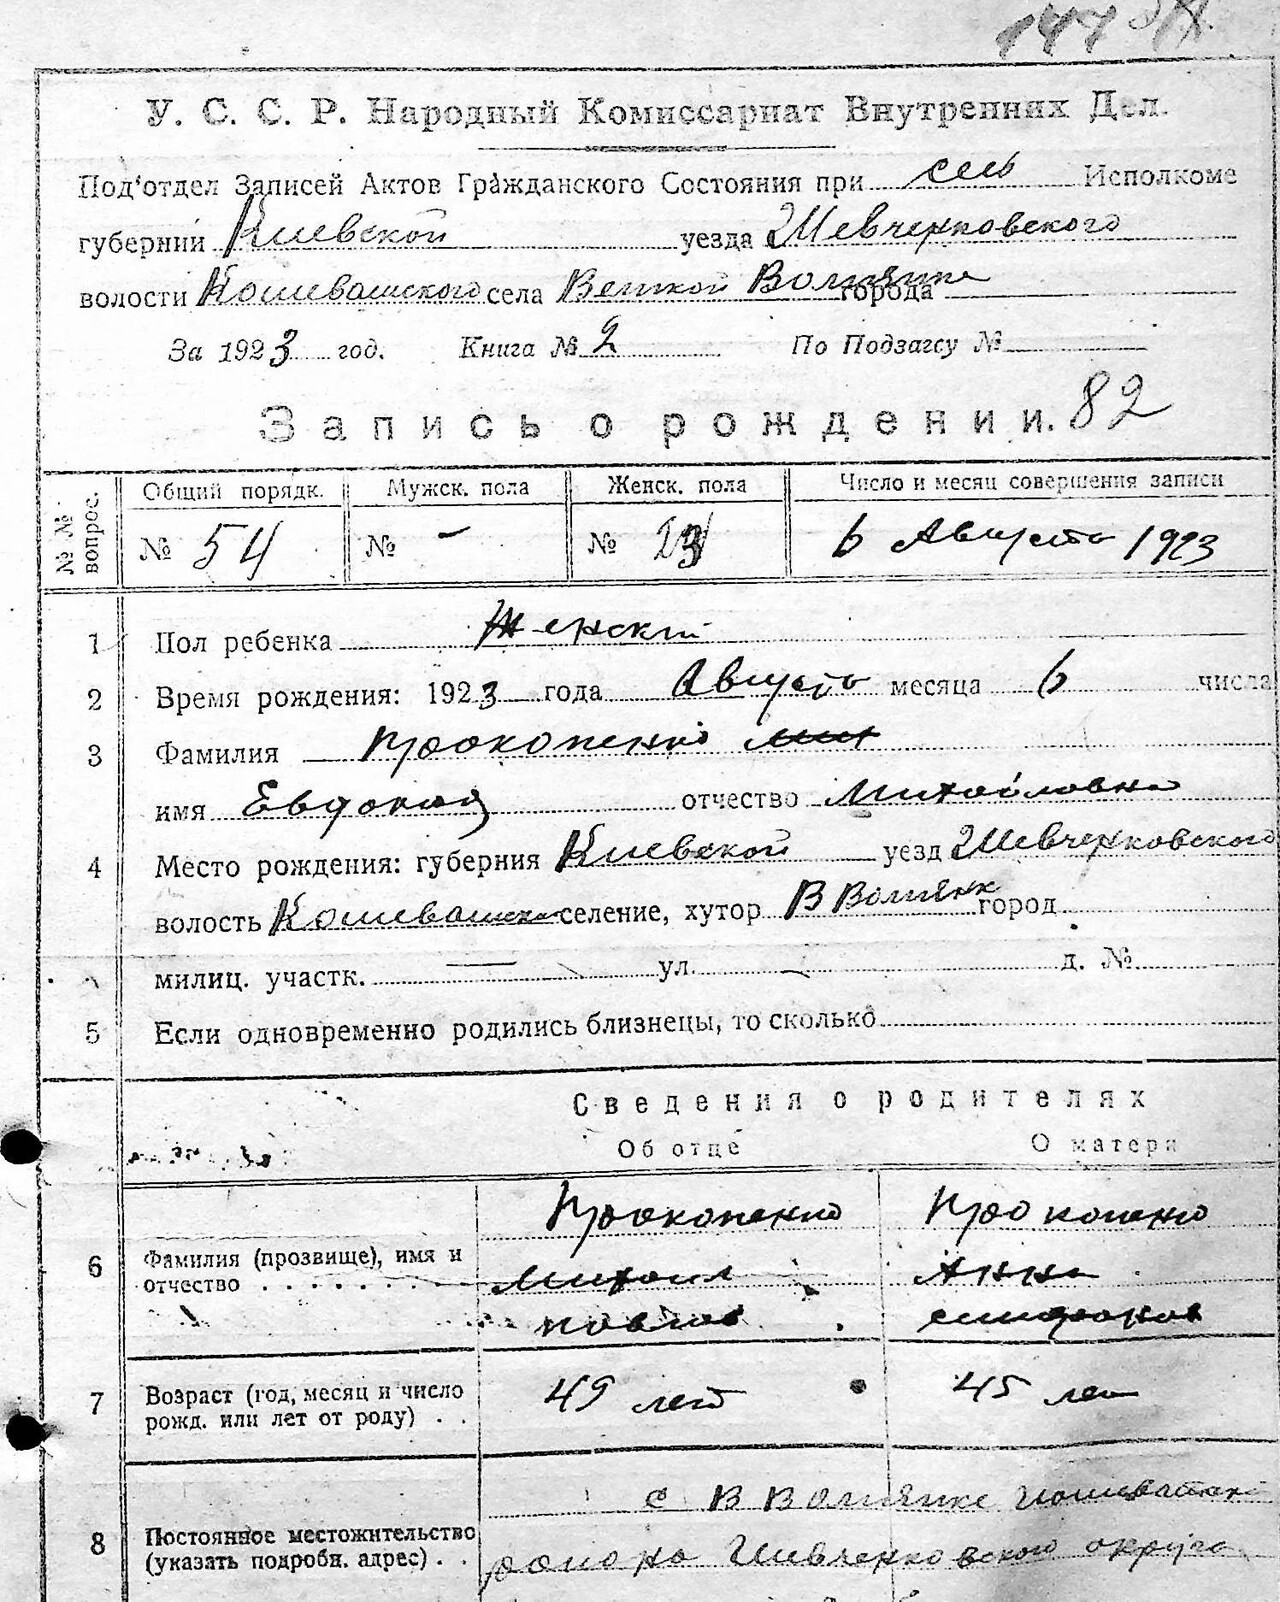 147
У. С. С. Р. Народный Комиссариат Внутренних Дел.
Под'отдел Записей Актов Гражданского Состояния при сель Исполкоме
губернии Киевской уезда Шевченковского
волости села города
За 1923 год. Книга № 2 По Подзагсу №
Запись о рождении. 82
№ № вопрос.
Общий порядк. Мужск. пола Женск. пола Число и месяц совершения записи
№ 54 № – № 23 6 Августа 1923
1 Пол ребенка Женский
2 Время рождения: 1923 года Августа месяца 6 числа
3 Фамилия Прокопенко
имя Евдокия отчество Михайловна
4 Место рождения: губерния Киевской уезд Шевченковского
волость селение, хутор город
милиц. участк. — ул. д. №
5 Если одновременно родились близнецы, то сколько
Сведения о родителях
Об отце О матери
Прокопенко Прокопенко
6 Фамилия (прозвище), имя и
отчество Михаил Анна
7 Возраст (год, месяц и число
рожд. или лет от роду) 49 лет 45 лет
с В
8 Постоянное местожительство
(указать подробн. адрес) района Шевченковского округа